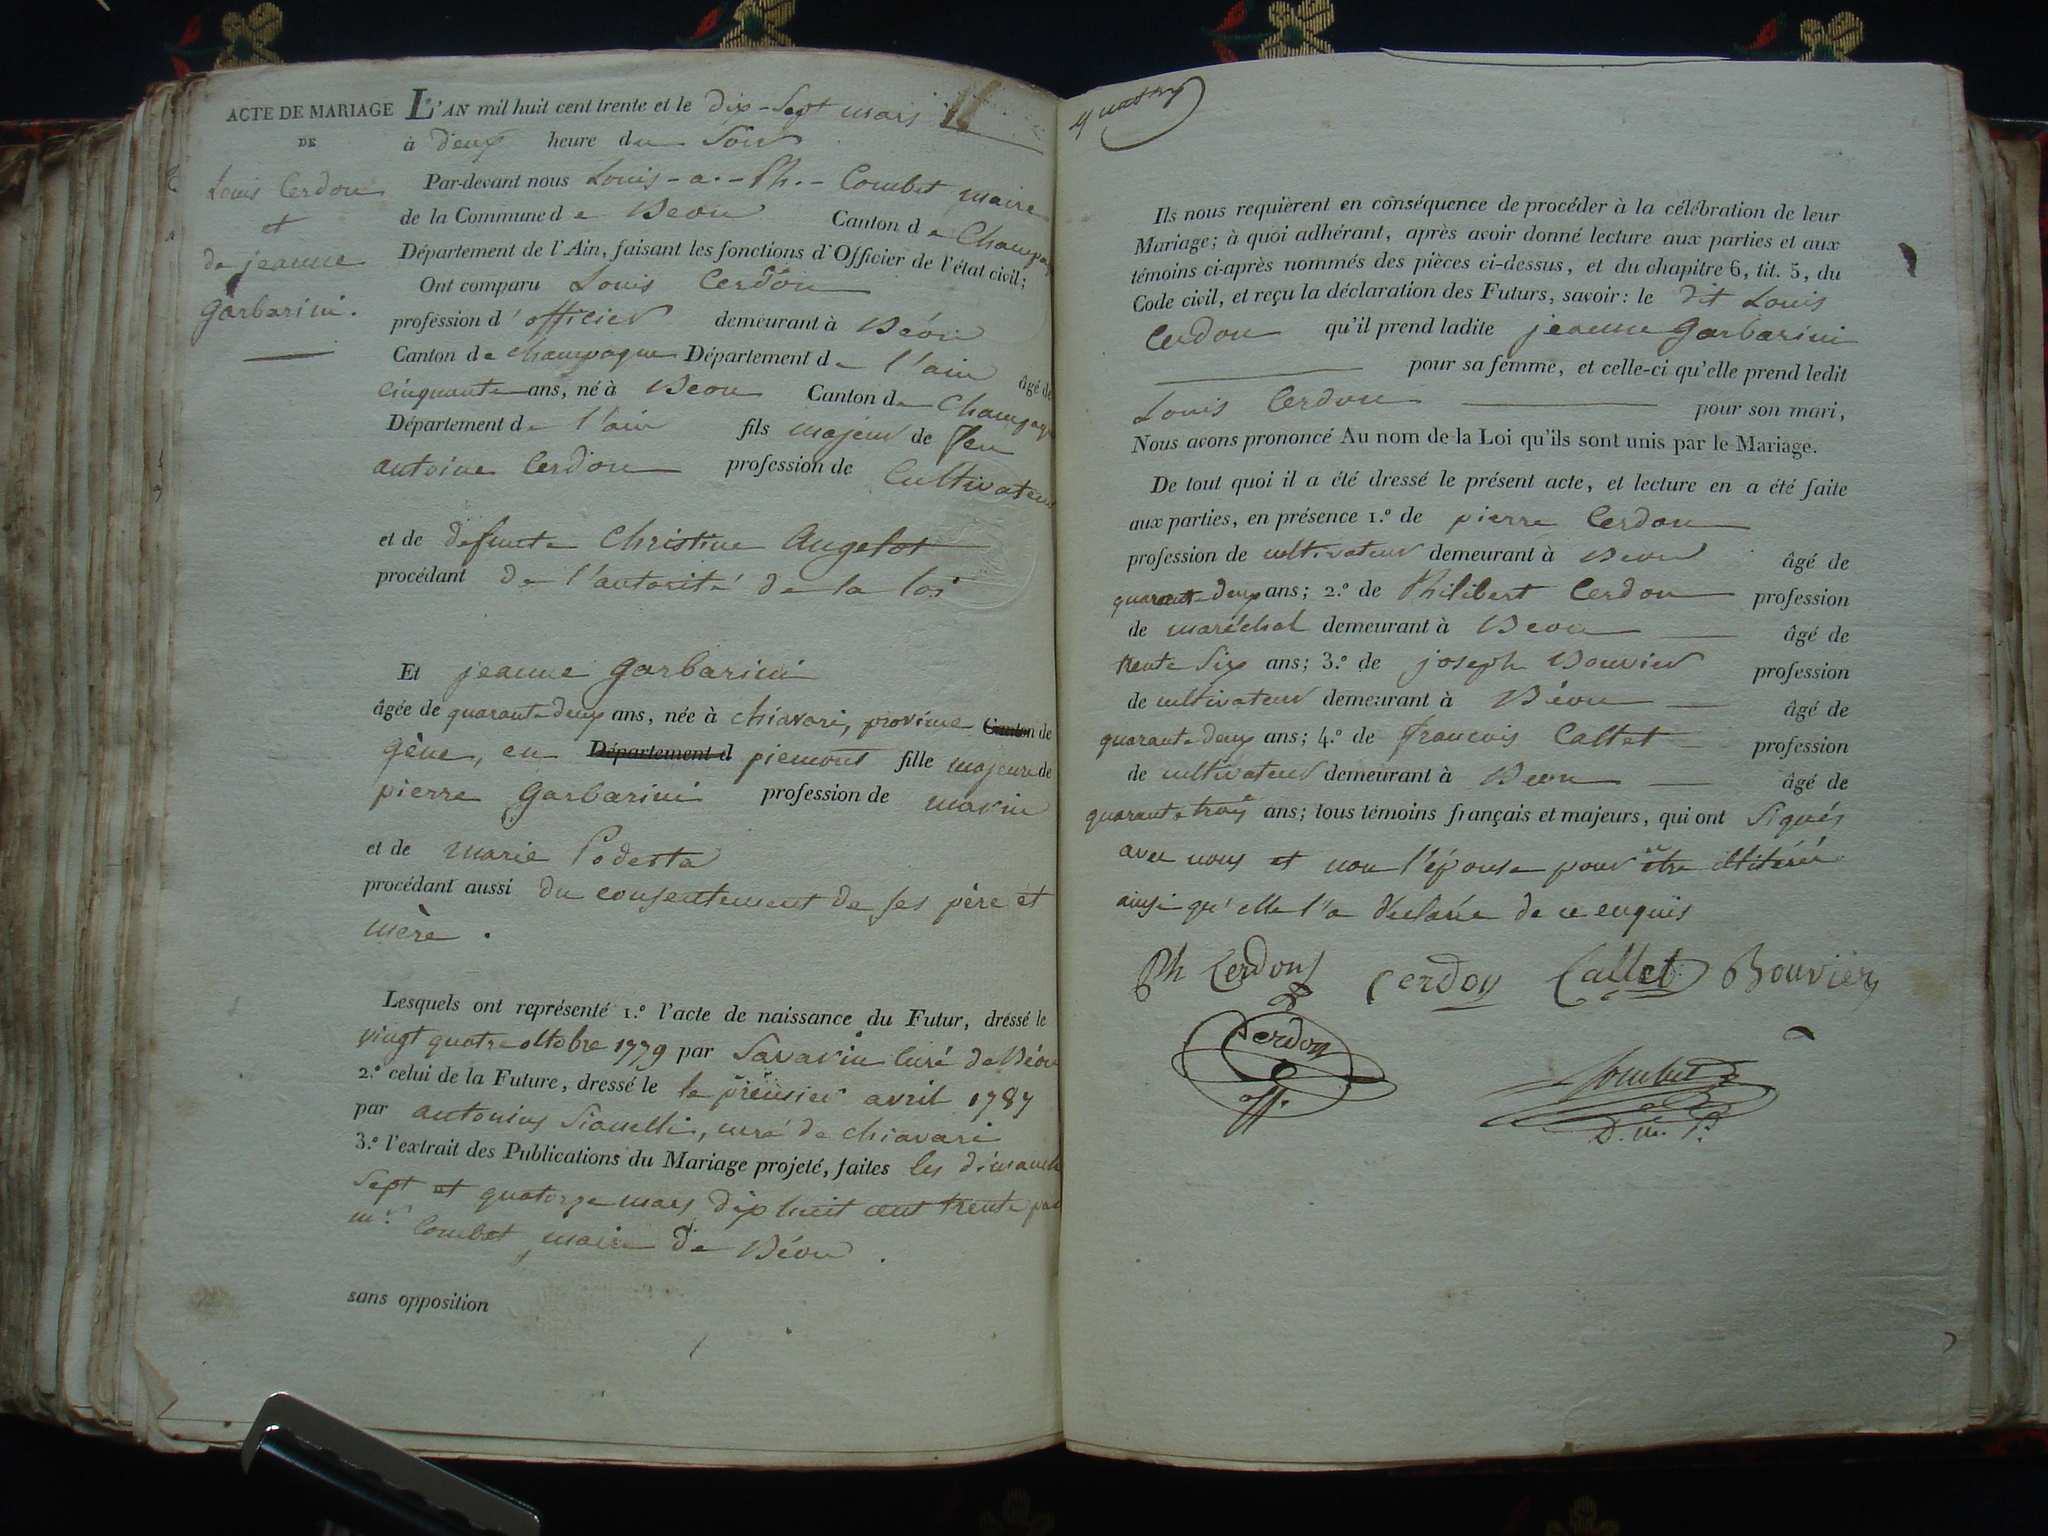 ACTE DE MARIAGE
DE
Louis Cerdon
et
de jeanne
garbarini.
L'AN mil huit cent trente et le dix-sept mars
à deux heure du Soir
Par-devant nous Louis-a.-Ph.- Combet maire
de la Commune de Béon Canton de Champagne
Département de l'Ain, faisant les fonctions d'Officier de l'état civil;
Ont comparu Louis Cerdon
profession d'officier demeurant à Béon
Canton de champagne Département de l'ain âgé de
cinquante ans, né à Béon Canton de Champagne
Département de l'ain fils majeur de feu
antoine Cerdon profession de Cultivateur
et de defunte Christine Angelot
procédant de l'autorité de la loi
Et jeanne garbarini
âgée de quarante deux ans, née à chiavari, province Canton de
gène, en Département d piemont fille majeure de
pierre garbarini profession de marin
et de marie Podesta
procédant aussi du consentement de ses père et
mère.
Lesquels ont représenté 1.º l'acte de naissance du Futur, dréssé le
vingt quatre octobre 1779 par Savarin curé de Béon
2.º celui de la Future, dressé le le premier avril 1787
par antonius Sianelli, curé de chiavari
3.º l'extrait des Publications du Mariage projeté, faites les dimanche
Sept et quatorze mars dix huit cent trente par
mr. Combet maire de Béon.
sans opposition
Ils nous requièrent en conséquence de procéder à la célébration de leur
Mariage; à quoi adhérant, après avoir donné lecture aux parties et aux
témoins ci-après nommés des pièces ci-dessus, et du chapitre 6, tit. 5, du
Code civil, et reçu la déclaration des Futurs, savoir: le dit Louis
Cerdon qu'il prend ladite jeanne garbarini
pour sa femme, et celle-ci qu'elle prend ledit
Louis Cerdon pour son mari,
Nous avons prononcé Au nom de la Loi qu'ils sont unis par le Mariage.
De tout quoi il a été dressé le présent acte, et lecture en a été faite
aux parties, en présence 1.º de pierre Cerdon
profession de cultivateur demeurant à Béon âgé de
quarante deux ans; 2.º de Philibert Cerdon profession
de maréchal demeurant à Béon âgé de
trente Six ans; 3.º de joseph Bouvier profession
de cultivateur demeurant à Béon âgé de
quarante deux ans; 4.º de francois Callet profession
de cultivateur demeurant à Béon âgé de
quarante trois ans; tous témoins français et majeurs, qui ont signés
avec nous et non l'épouse pour être illitérée
ainsi qu'elle l'a déclarée de ce enquis
Ph Cerdon Cerdon Callet Bouvier
Cerdon Combet